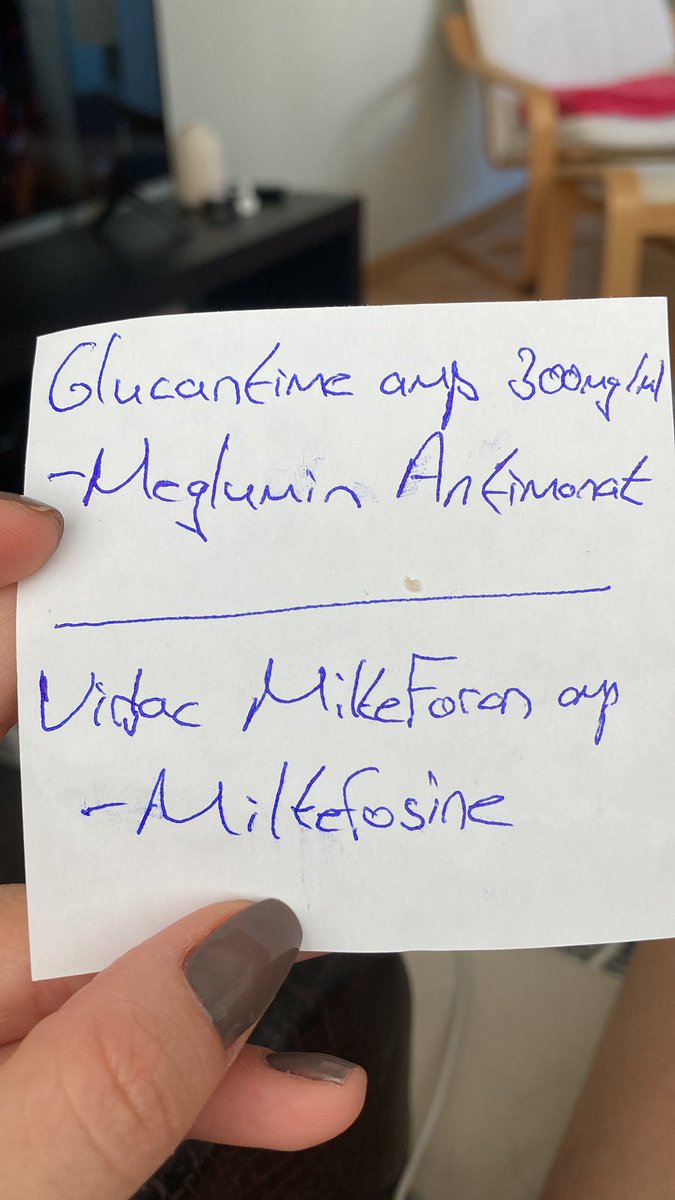 Glucantime amp 300mg/ml
-Meglumin Antimonat
Virbac MilteForan amp
-Miltefosine